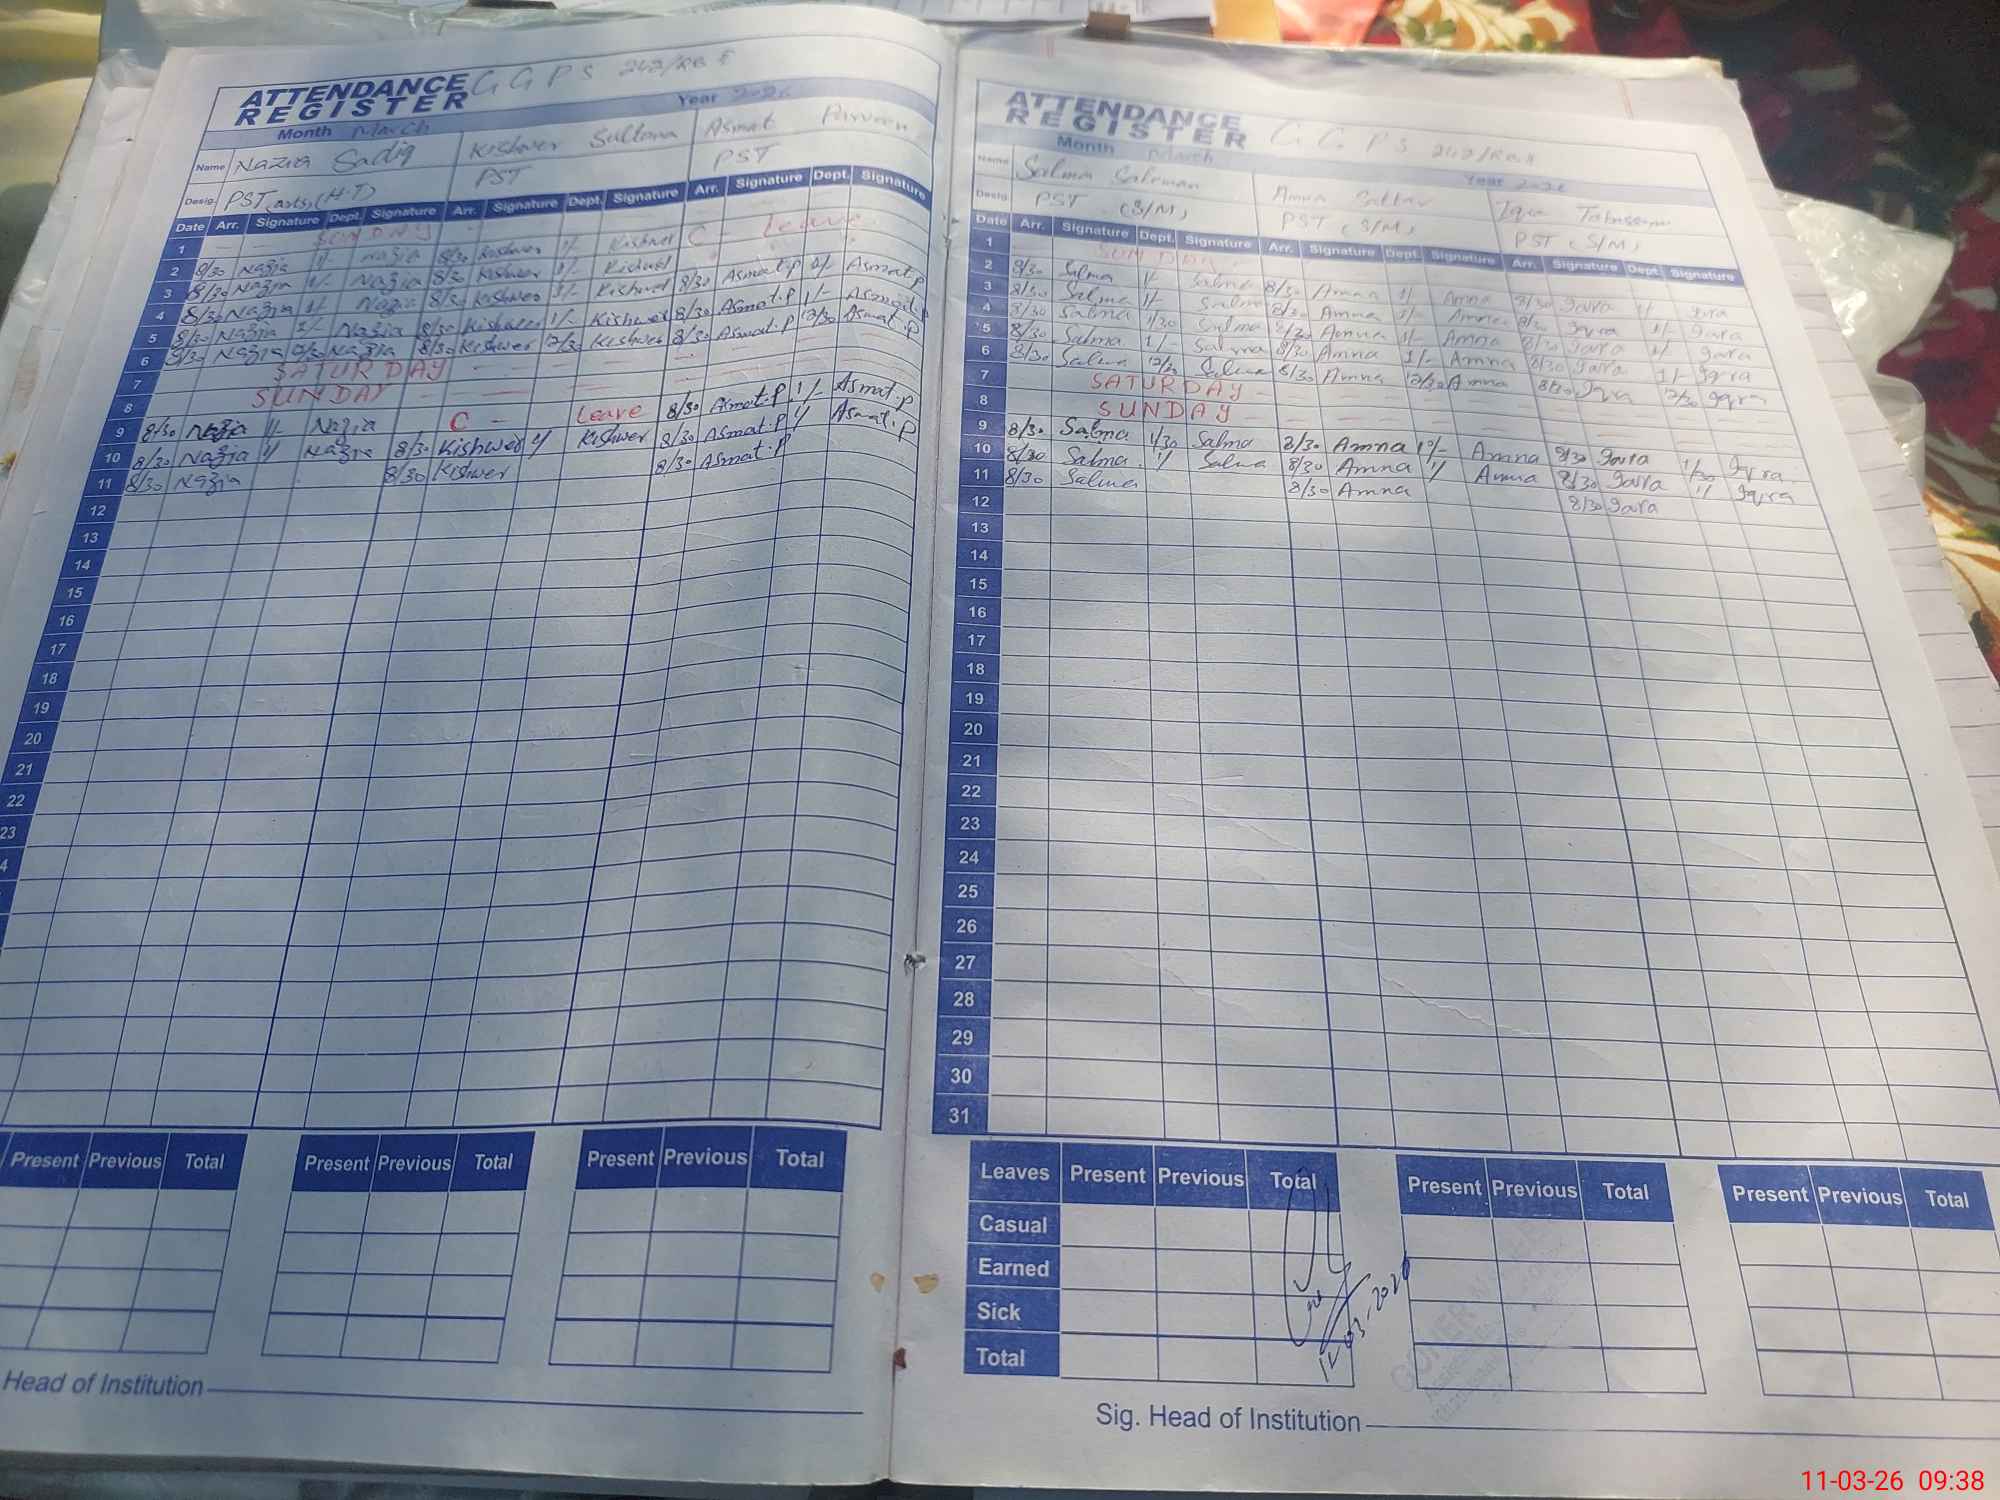 ATTENDANCE REGISTER G G P S 242/RB II
Month March Year 2026
Name Nazia Sadiq Kishwer Sultana Asmat Parveen
Desig. PST(arts)(H.T) PST PST
Date Arr. Signature Dept. Signature Arr. Signature Dept. Signature Arr. Signature Dept. Signature
1 SUNDAY
2 8/30 Nazia 1/- Nazia 8/30 Kishwer 1/- Kishwer C - Leave
3 8/30 Nazia 1/- Nazia 8/30 Kishwer 1/- Kishwer 8/30 Asmat.P 1/- Asmat.P
4 8/30 Nazia 1/- Nazia 8/30 Kishwer 1/- Kishwer 8/30 Asmat.P 1/- Asmat.P
5 8/30 Nazia 1/- Nazia 8/30 Kishwer 1/- Kishwer 8/30 Asmat.P 1/- Asmat.P
6 8/30 Nazia 12/30 Nazia 8/30 Kishwer 12/30 Kishwer 8/30 Asmat.P 12/30 Asmat.P
7 SATURDAY
8 SUNDAY
9 8/30 Nazia 1/- Nazia C - Leave 8/30 Asmat.P 1/- Asmat.P
10 8/30 Nazia 1/ Nazia 8/30 Kishwer 1/ Kishwer 8/30 Asmat.P 1/ Asmat.P
11 8/30 Nazia 8/30 Kishwer 8/30 Asmat.P
12
13
14
15
16
17
18
19
20
21
22
23
4
Present Previous Total Present Previous Total Present Previous Total
Head of Institution
ATTENDANCE REGISTER G G P S 242/RB II
Month March Year 2026
Name Salma Suleman Amna Sattar Iqra Tabassum
Desig. PST (S/M) PST (S/M) PST (S/M)
Date Arr. Signature Dept. Signature Arr. Signature Dept. Signature Arr. Signature Dept. Signature
1 SUNDAY
2 8/30 Salma 1/- Salma 8/30 Amna 1/- Amna 8/30 Iqra 1/- Iqra
3 8/30 Salma 1/- Salma 8/30 Amna 1/- Amna 8/30 Iqra 1/- Iqra
4 8/30 Salma 1/30 Salma 8/30 Amna 1/- Amna 8/30 Iqra 1/- Iqra
5 8/30 Salma 1/- Salma 8/30 Amna 1/- Amna 8/30 Iqra 1/- Iqra
6 8/30 Salma 12/30 Salma 8/30 Amna 12/30 Amna 8/30 Iqra 12/30 Iqra
7 SATURDAY
8 SUNDAY
9 8/30 Salma 1/30 Salma 8/30 Amna 1/- Amna 8/30 Iqra 1/30 Iqra
10 8/30 Salma 1/ Salma 8/30 Amna 1/ Amna 8/30 Iqra 1/ Iqra
11 8/30 Salma 8/30 Amna 8/30 Iqra
12
13
14
15
16
17
18
19
20
21
22
23
24
25
26
27
28
29
30
31
Leaves Present Previous Total Present Previous Total Present Previous Total
Casual
Earned
Sick
Total
Sig. Head of Institution
11-03-26 09:38